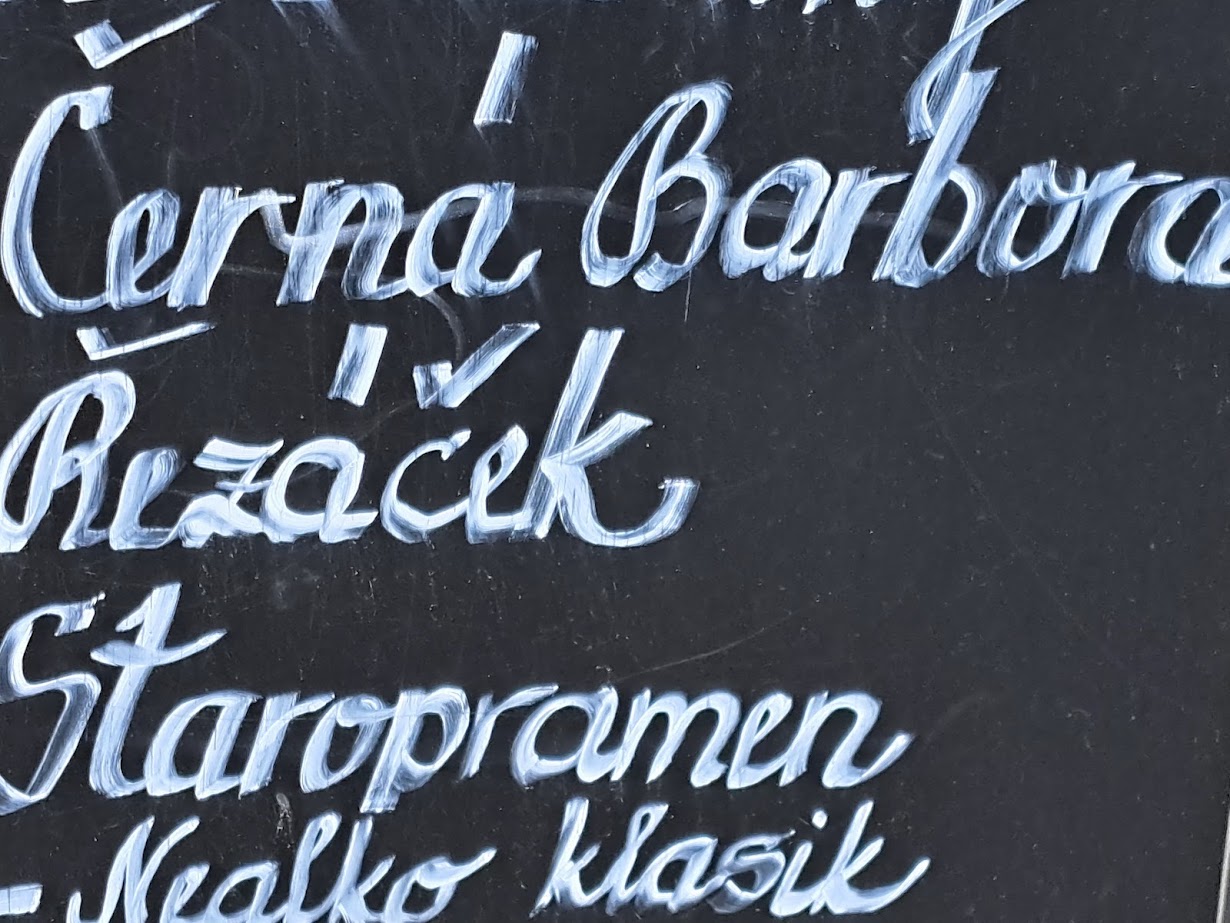 Černá Barbora
Řezáček
Staropramen
- Nealko klasik